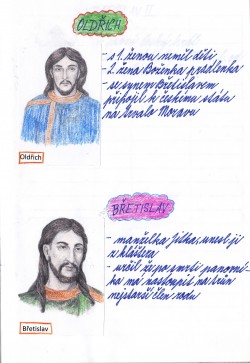 OLDŘICH
- s 1. ženou neměl děti
- 2. žena Boženka pradlenka
- se synem Břetislavem
připojil k českému státu
na trvalo Moravu
Oldřich
BŘETISLAV
- manželka Jitka, unesl ji
z kláštera
- určil že po smrti panovní-
ka má nastoupit na trůn
nejstarší člen rodu
Břetislav